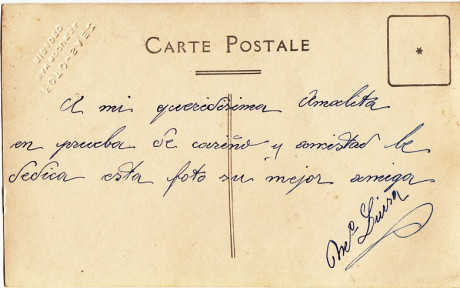 CARTE POSTALE
A mi queridisima Amalita
en prueba de cariño y amistad le
dedica esta foto su mejor amiga
Mª Luisa